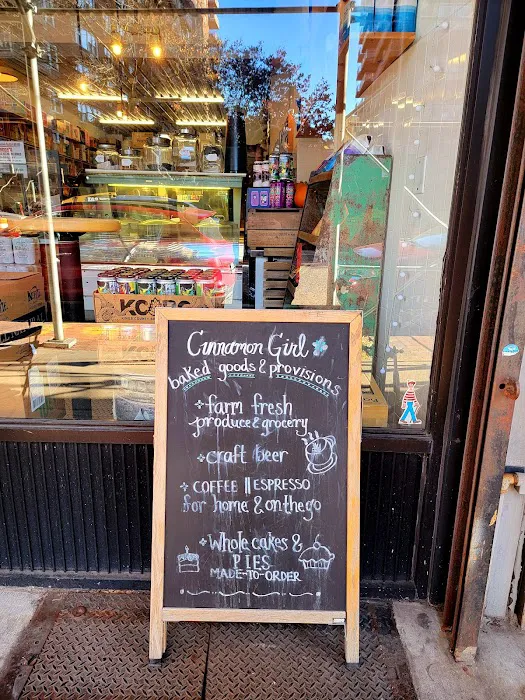 KCBC
Cinnamon Girl
baked goods & provisions
farm fresh
produce & grocery
craft beer
COFFEE || ESPRESSO
for home & on the go
Whole cakes &
PIES
MADE-TO-ORDER